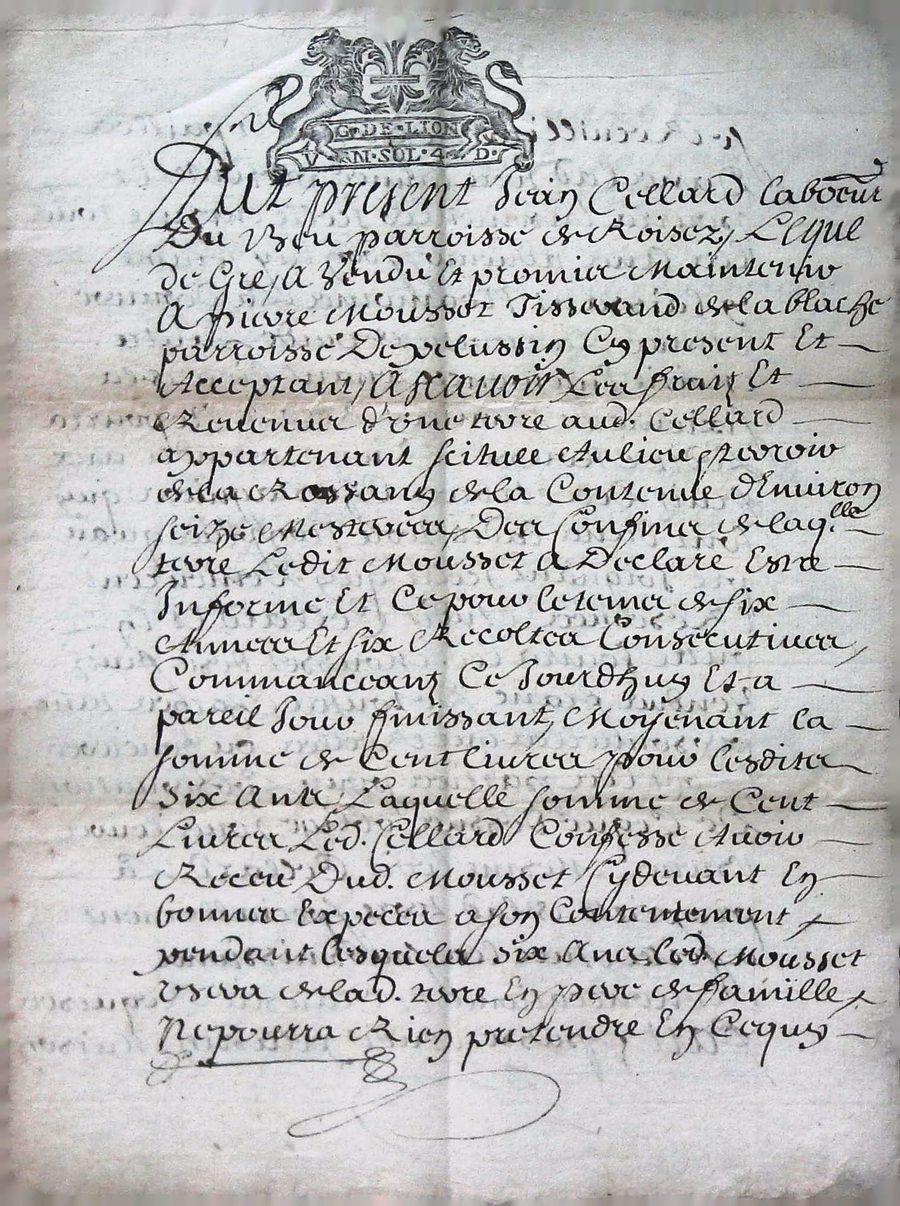 G·DE·LION
V AN·SOL·4·D·
Fut present Jean Cellard laboeur
Du Veu parroisse de Roisez, Leque
de Gre, A Vendu Et promier Maintenir
A pierre Mousset Tisserand de la blache
parroisse De pelussin Cy present Et
Acceptant, Ascavoir Les fraiz Et
Revenus d'une terre aud. Cellard
appartenant scituee Au lieu terroir
de la de la Contenue d'Environ
seize Mesteres, Des Confins de laq.lle
terre Ledit Mousset a Declare Estre
Informe Et Ce pour le temps de six
Annees Et six Recoltes Consecutives,
Commanceant Ce Jourdhuy Et a
pareil Jour finissant, Moyenant la
somme de Cent livres pour lesdites
Six Ans, Laquelle somme de Cent
Livres Led. Cellard Confesse Avoir
Receu Dud. Mousset Cy devant En
bonnes Expeces a son Contentement
pendant lesquels six Ans led. Mousset
Usera de lad. terre En pere de famille
Ne pourra Rien pretendre En Ce quy